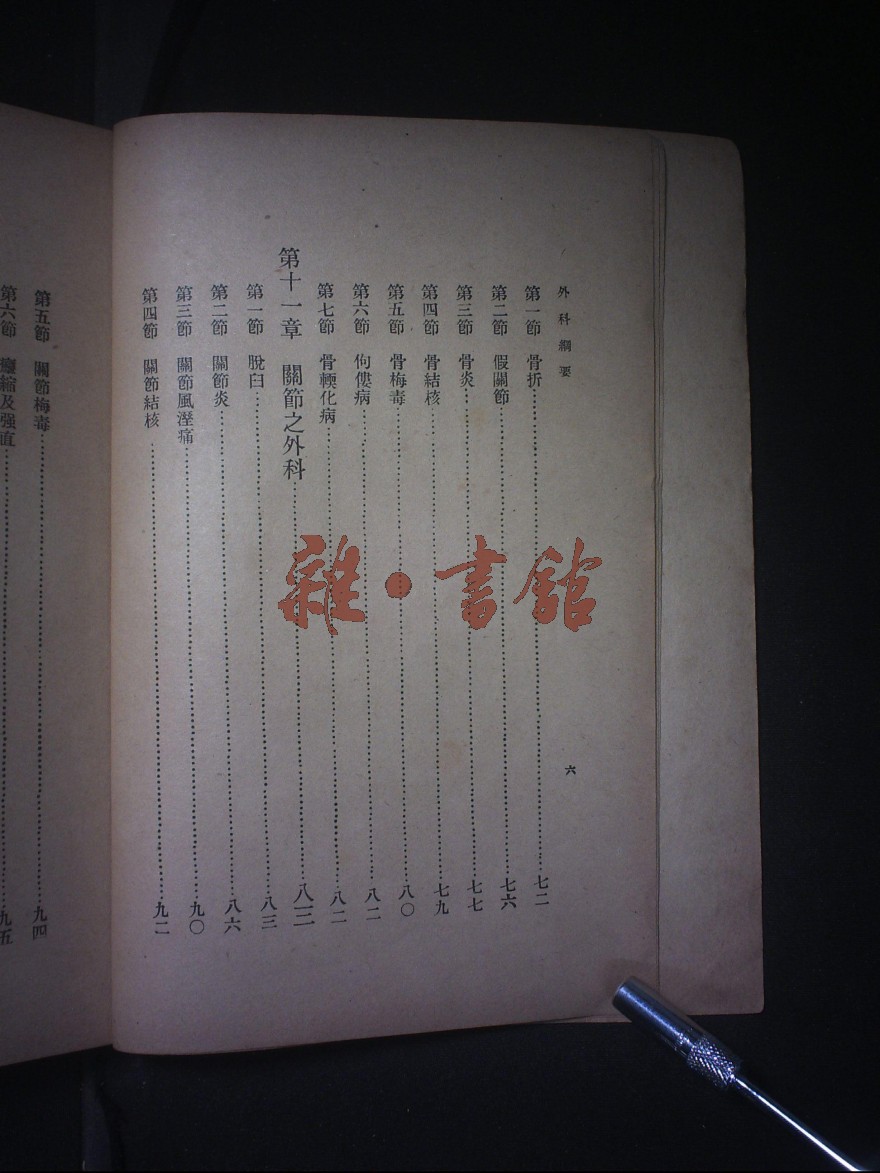 外科綱要
六
第一節　骨折……七二
第二節　假關節……七六
第三節　骨炎……七七
第四節　骨結核……七九
第五節　骨梅毒……八〇
第六節　佝僂病……八二
第七節　骨輭化病……八二
第十一章　關節之外科……八三
第一節　脫臼……八三
第二節　關節炎……八六
第三節　關節風溼痛……九〇
第四節　關節結核……九二
第五節　關節梅毒……九四
第六節　攣縮及强直……九五
雜・書館